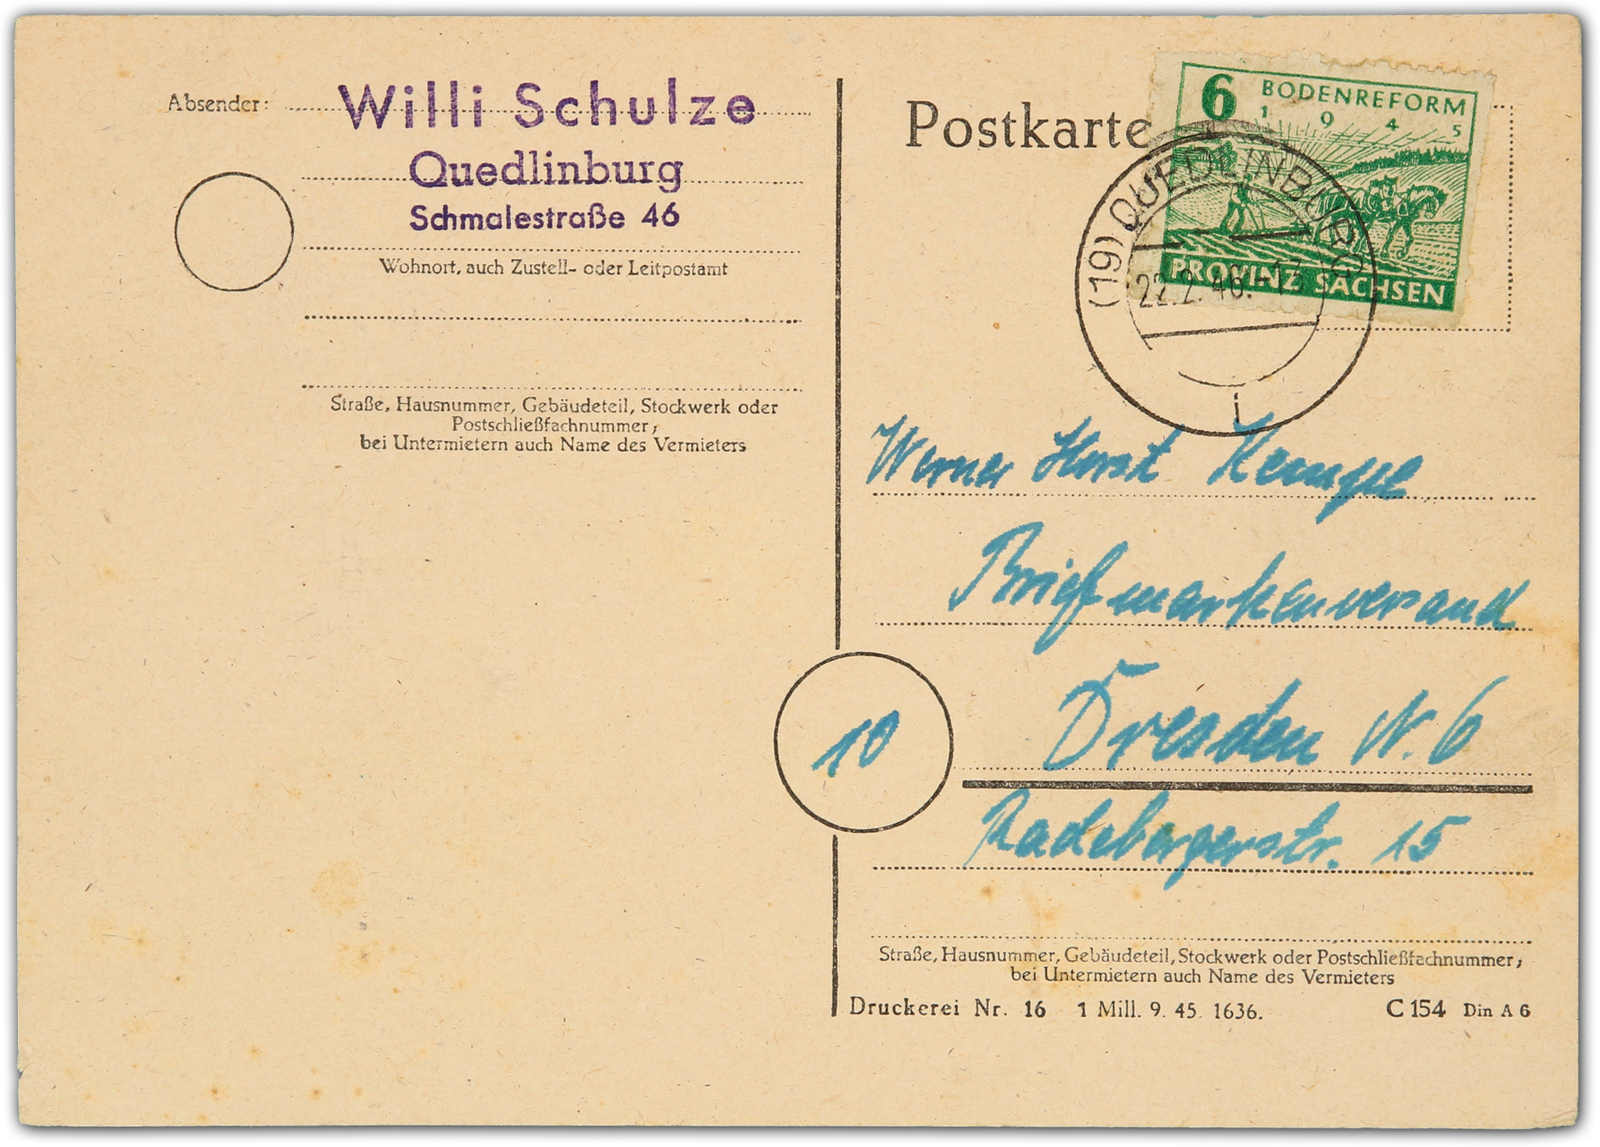 Absender: Willi Schulze
Quedlinburg
Schmalestraße 46
Wohnort, auch Zustell- oder Leitpostamt
Straße, Hausnummer, Gebäudeteil, Stockwerk oder
Postschließfachnummer,
bei Untermietern auch Name des Vermieters
Postkarte
6 BODENREFORM
1 9 4 5
PROVINZ SACHSEN
(19) QUEDLINBURG
22.2.46.
i
Werner Horst Kempel
Briefmarkenversand
10
Dresden N. 6
Radebergerstr. 15
Straße, Hausnummer, Gebäudeteil, Stockwerk oder Postschließfachnummer,
bei Untermietern auch Name des Vermieters
Druckerei Nr. 16 1 Mill. 9. 45. 1636. C 154 Din A 6